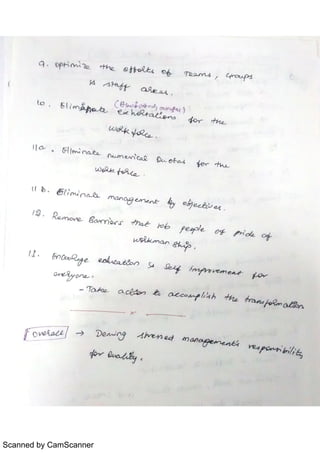 9. optimize the efforts of Teams, Groups
& staff areas.
10. Eliminate exhortations for the
work force.
11a. Eliminate numerical Quotas for the
work force.
11 b. Eliminate management by objectives.
12. Remove Barriers that rob people of pride of
workman ship.
13. Encourage education & self improvement for
everyone.
- Take action to accomplish the transformation
x
Overall → Deming stressed management's responsibility
for Quality.
Scanned by CamScanner